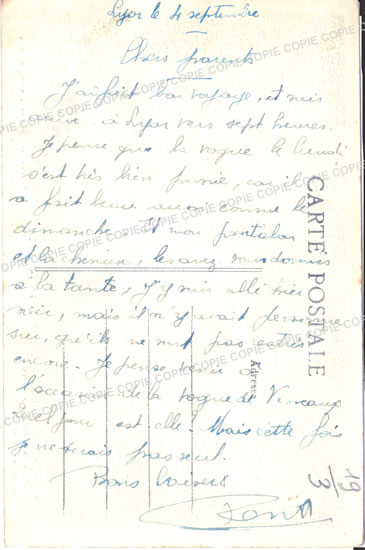 Lyon le 4 septembre
Chers parents
J'ai fait bon voyage, et suis
à Lyon vers sept heures.
Je pense que la vogue le lundi
s'est très bien passée, car il
a fait beau aussi comme le
dimanche. Et mon pantalon
et la chemise, les avez vous donnés
a la tante, j'y suis allé hier
soir, mais il n'y avait personne
que, qu'ils ne sont pas
encore. Je pense venir à
l'occasion de la vogue de
quel jour est elle? Mais cette fois
je ne serais pas seul.
Bons baisers
CARTE POSTALE
Adresse
19/3
COPIE COPIE COPIE COPIE COPIE COPIE